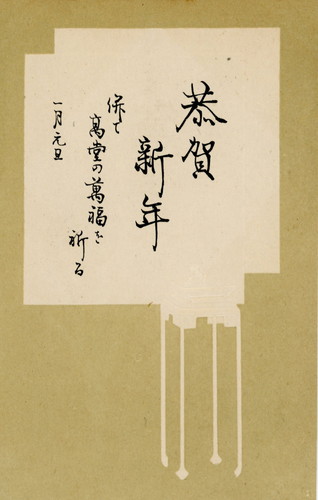 恭賀
新年
併て
高堂の萬福を
祈る
一月元旦